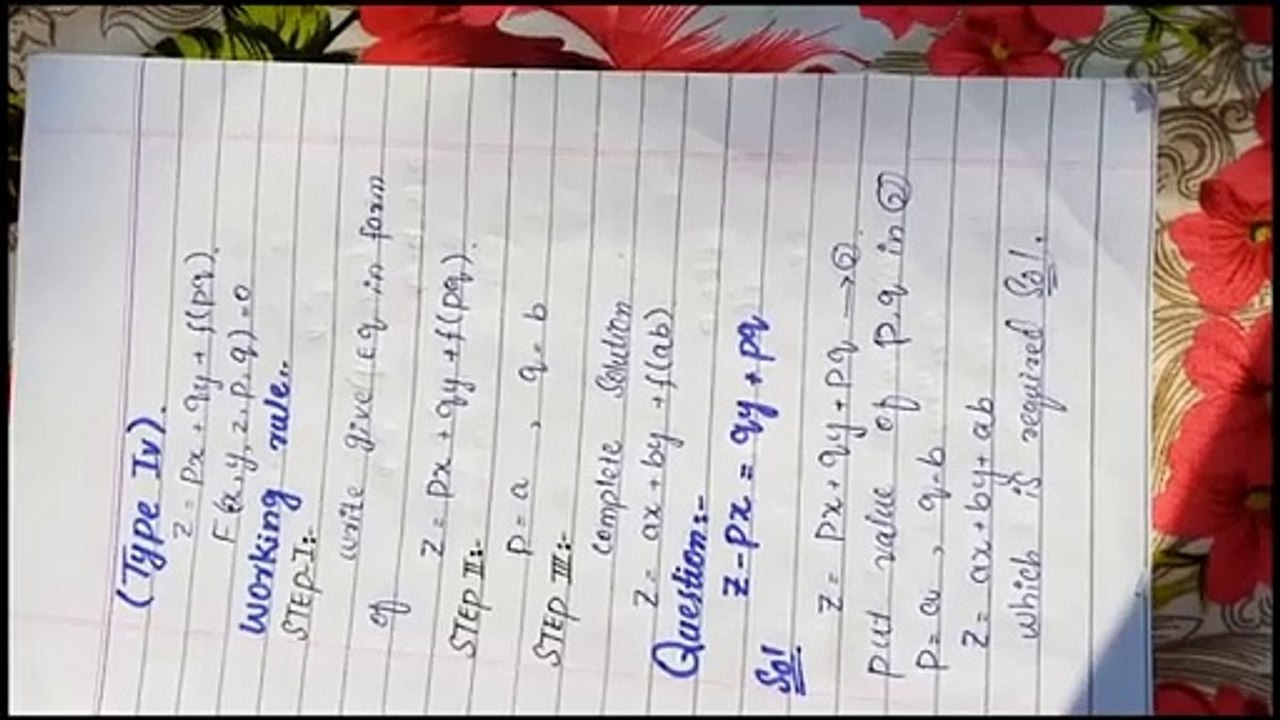 (Type Iv).
Z = Px + qy + f(pq).
F(x,y,z,p,q)=0
Working rule..
STEP-I:-
write give eq in form
of
Z = Px + qy + f(pq).
STEP II:-
P = a , q = b
STEP III:-
Complete Solution
Z = ax + by + f(ab)
Question:-
Z - Px = qy + pq
Sol
Z = Px + qy + pq → ②.
Put value of p,q in ②
P = a , q = b
Z = ax + by + ab
which is required Sol.